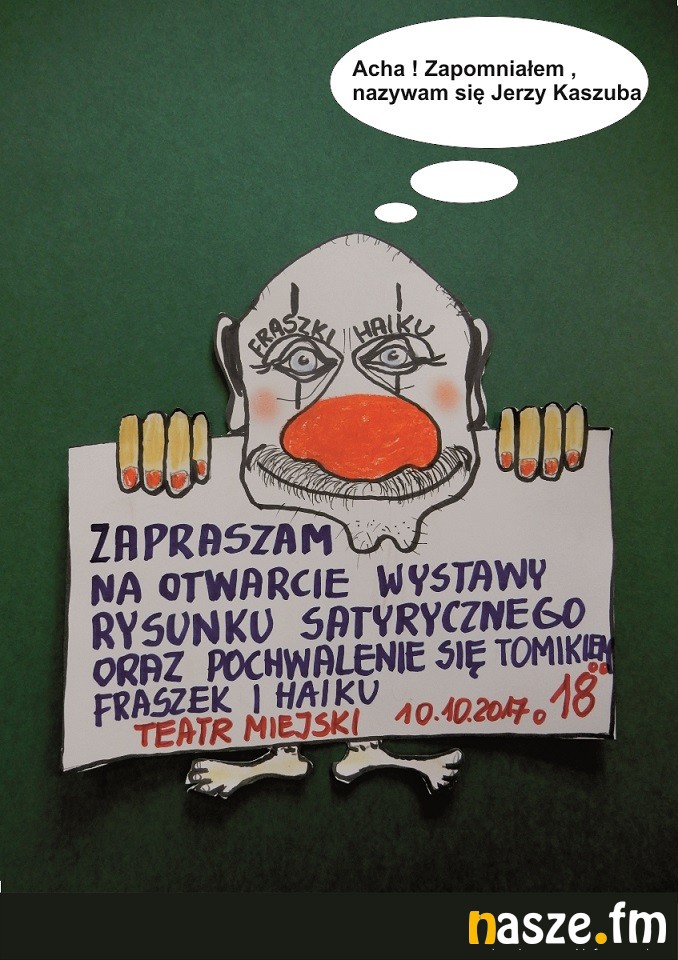 Acha ! Zapomniałem ,
nazywam się Jerzy Kaszuba
FRASZKI HAIKU
ZAPRASZAM
NA OTWARCIE WYSTAWY
RYSUNKU SATYRYCZNEGO
ORAZ POCHWALENIE SIĘ TOMIKIEM
FRASZEK I HAIKU
TEATR MIEJSKI 10.10.2017 o 18⁰⁰
nasze.fm